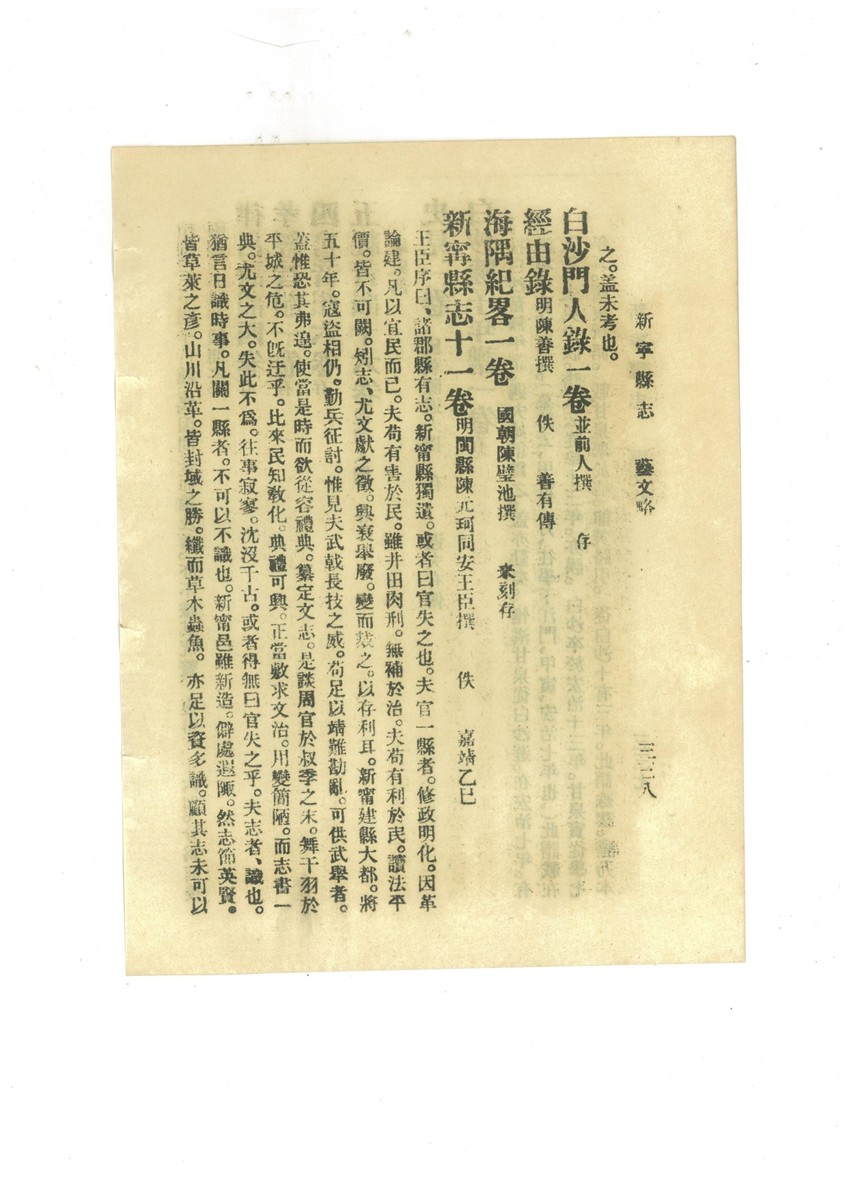 新寧縣志 藝文略 三二八
之。葢未考也。
白沙門人錄一卷 並前人撰 存
經由錄 明陳善撰 佚 善有傳
海隅紀畧一卷 國朝陳璧池撰 未刻存
新甯縣志十一卷 明閩縣陳元珂同安王臣撰 佚 嘉靖乙巳
王臣序曰、諸郡縣有志。新甯縣獨遺。或者曰官失之也。夫官一縣者。修政明化。因革
論建。凡以宜民而已。夫苟有害於民。雖井田肉刑。無補於治。夫苟有利於民。讀法平
價。皆不可闕。矧志、尤文獻之徵。興衰舉廢。變而裁之。以存利耳。新甯建縣大都。將
五十年。寇盜相仍。勤兵征討。惟見夫武戟長技之威。苟足以靖難勘亂。可供武舉者。
葢惟恐其弗遑。使當是時而欲從容禮典。纂定文志。是談周官於叔季之末。舞干羽於
平城之危。不旣迂乎。比來民知敎化。典禮可興。正當敷求文治。用變簡陋。而志書一
典。尤文之大。失此不爲。往事寂寥。沈沒千古。或者得無曰官失之乎。夫志者、識也。
猶言日識時事。凡關一縣者。不可以不識也。新甯邑雖新造。僻處遐陬。然志節英賢。
皆草萊之彥。山川沿革。皆封域之勝。纖而草木蟲魚。亦足以資多識。顧其志未可以